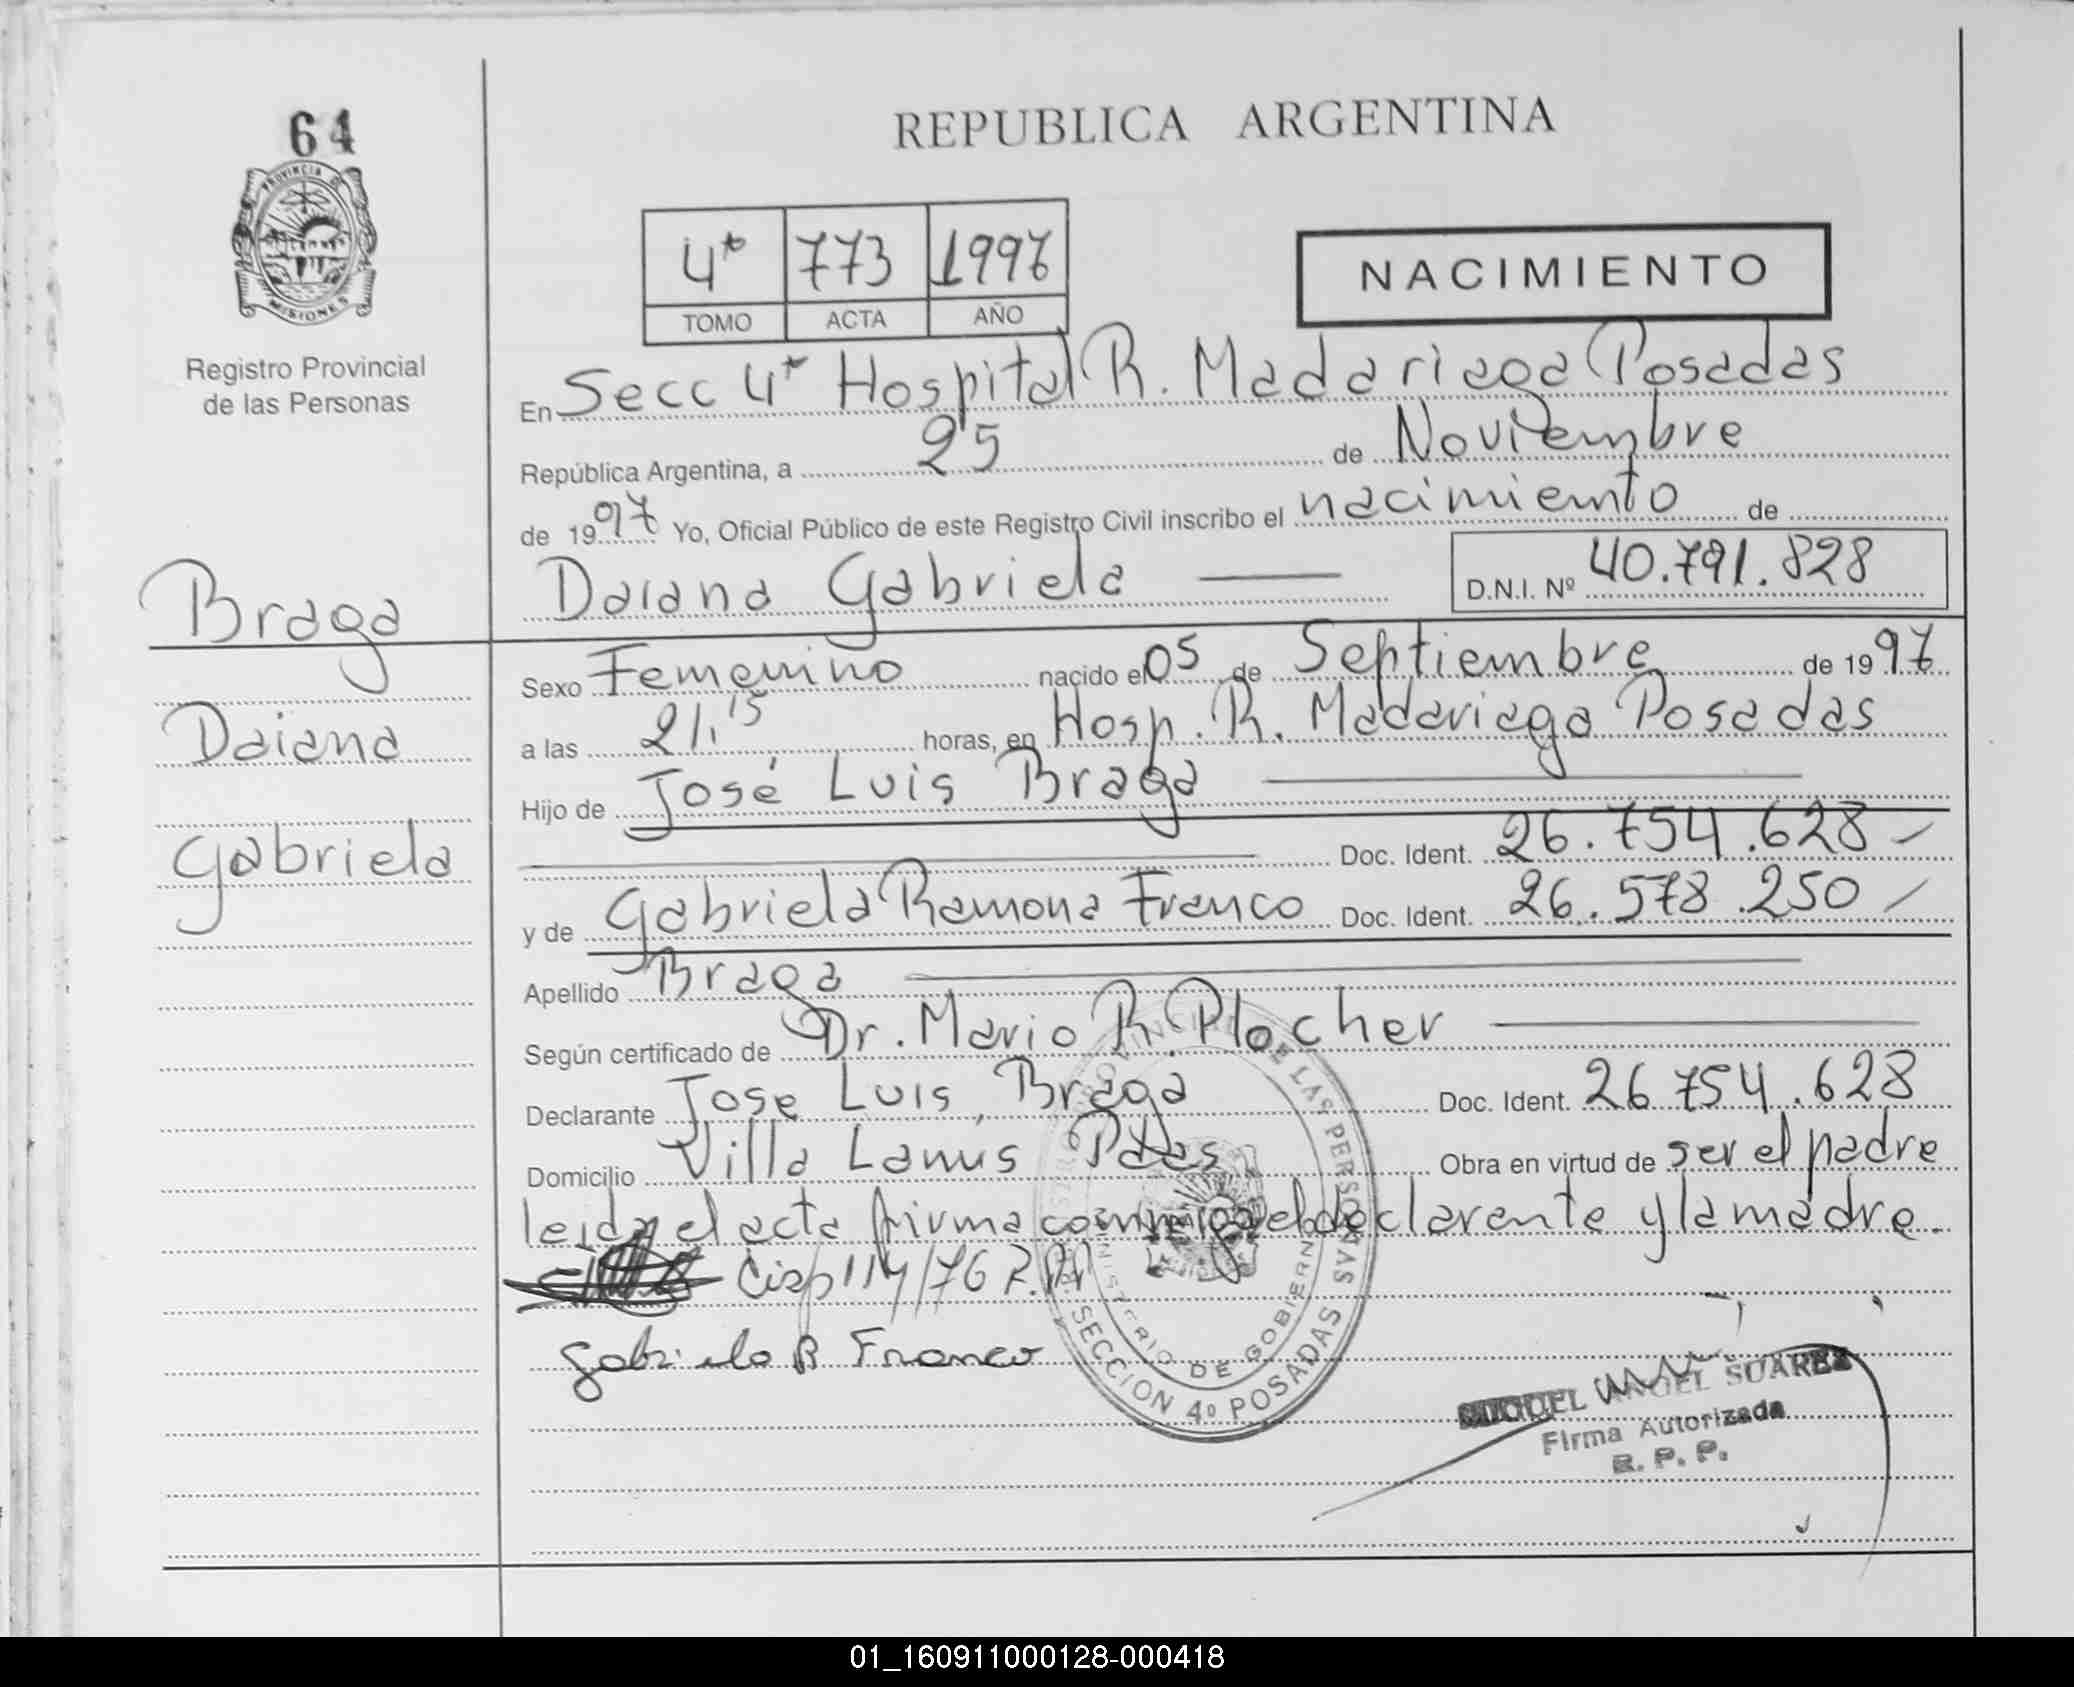 64
PROVINCIA DE
MISIONES
Registro Provincial
de las Personas
REPUBLICA ARGENTINA
4ª 773 1997
TOMO ACTA AÑO
NACIMIENTO
En Secc 4ª Hospital R. Madariaga Posadas
República Argentina, a 25 de Noviembre
de 1997 Yo, Oficial Público de este Registro Civil inscribo el nacimiento de
Daiana Gabriela
D.N.I. Nº 40.791.828
Braga
Daiana
Gabriela
Sexo Femenino nacido el 05 de Septiembre de 1997
a las 21,15 horas, en Hosp. R. Madariaga Posadas
Hijo de José Luis Braga
Doc. Ident. 26.754.628
y de Gabriela Ramona Franco Doc. Ident. 26.578.250
Apellido Braga
Según certificado de Dr. Mario R. Plocher
Declarante Jose Luis Braga Doc. Ident. 26 754.628
Domicilio Villa Lanús Pdas Obra en virtud de ser el padre
leida el acta firma conmigo el declarante y la madre.
Disp 114/76
Gabriela R Franco
PROVINCIAL DE LAS PERSONAS
MINISTERIO DE GOBIERNO
SECCION 4º POSADAS
MIGUEL ANGEL SUAREZ
Firma Autorizada
R. P. P.
01_160911000128-000418